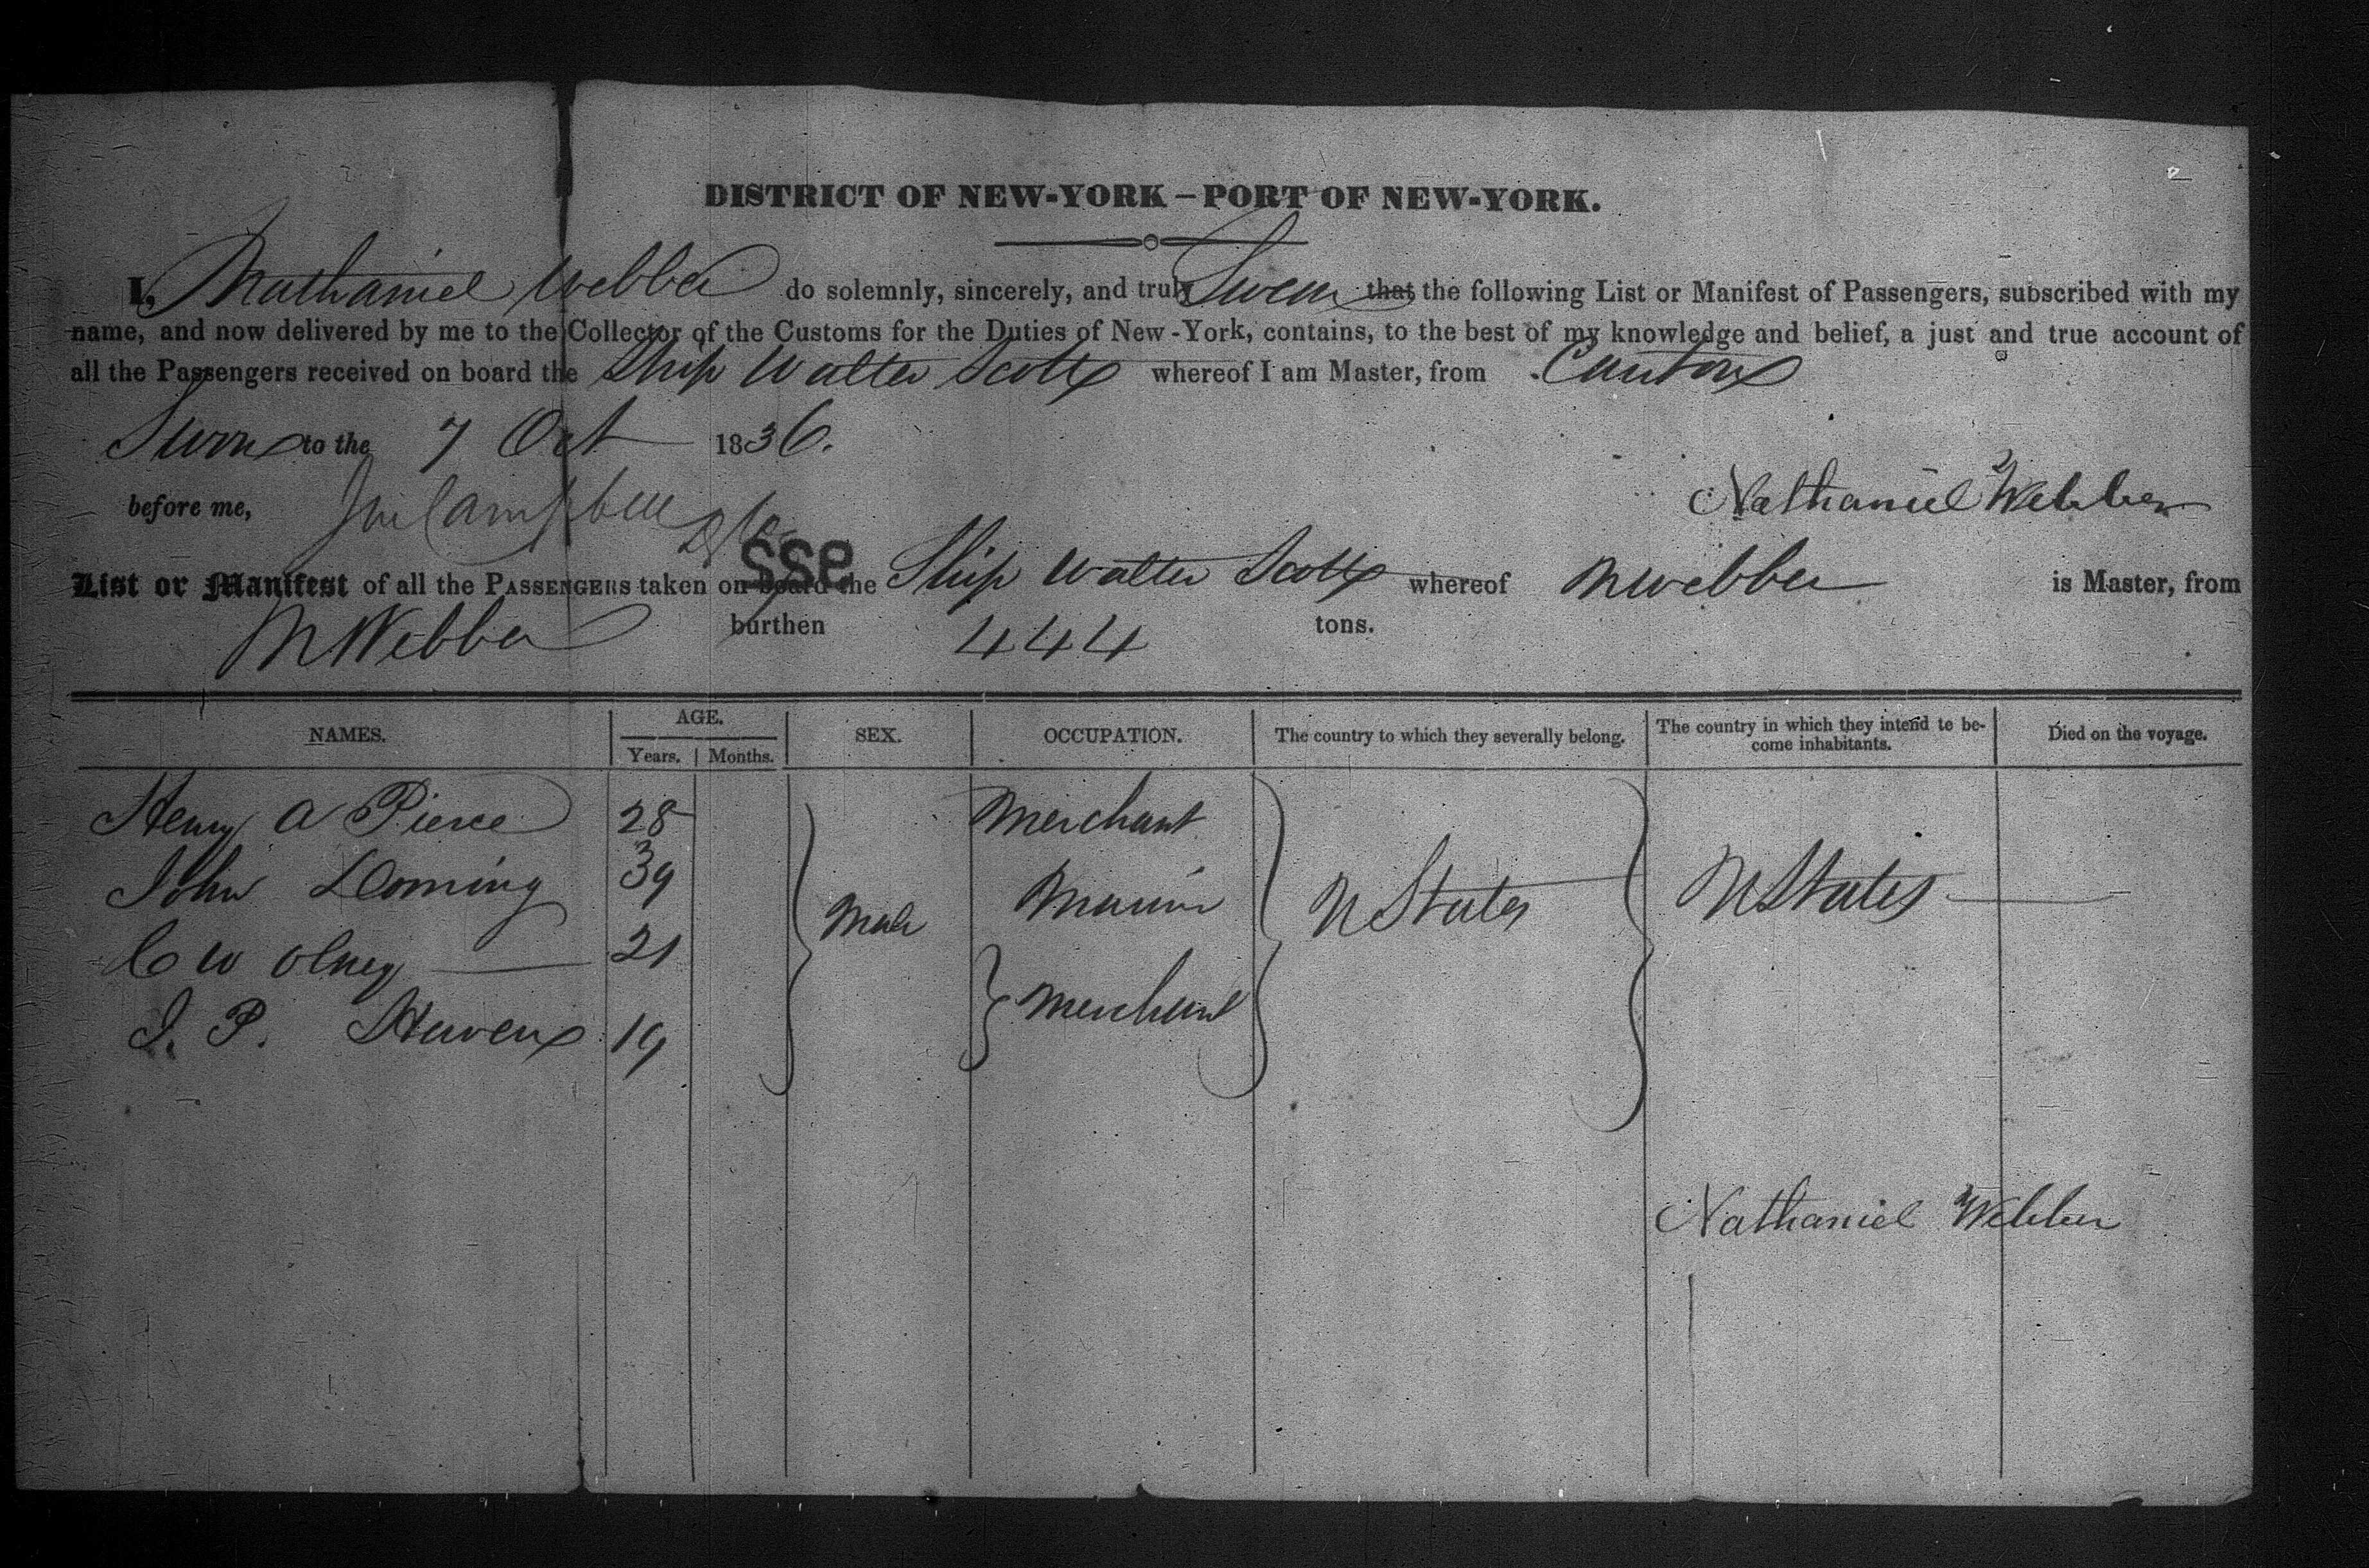 DISTRICT OF NEW-YORK – PORT OF NEW-YORK.
I, Nathaniel Webber do solemnly, sincerely, and truly Swear that the following List or Manifest of Passengers, subscribed with my
name, and now delivered by me to the Collector of the Customs for the Duties of New-York, contains, to the best of my knowledge and belief, a just and true account of
all the Passengers received on board the Ship Walter Scott whereof I am Master, from Canton
Sworn to the 7 Oct 1836.
before me, Campbell Nathaniel Webber
List or Manifest of all the PASSENGERS taken on board the Ship Walter Scott whereof N Webber is Master, from
N Webber burthen 444 tons.
NAMES. AGE. Years. Months. SEX. OCCUPATION. The country to which they severally belong. The country in which they intend to become inhabitants. Died on the voyage.
Henry A Pierce 28 Merchant
John Doming 39 Male Mariner U States U States
C W Olney 21
J. P. Stevens 19 Merchant
Nathaniel Webber